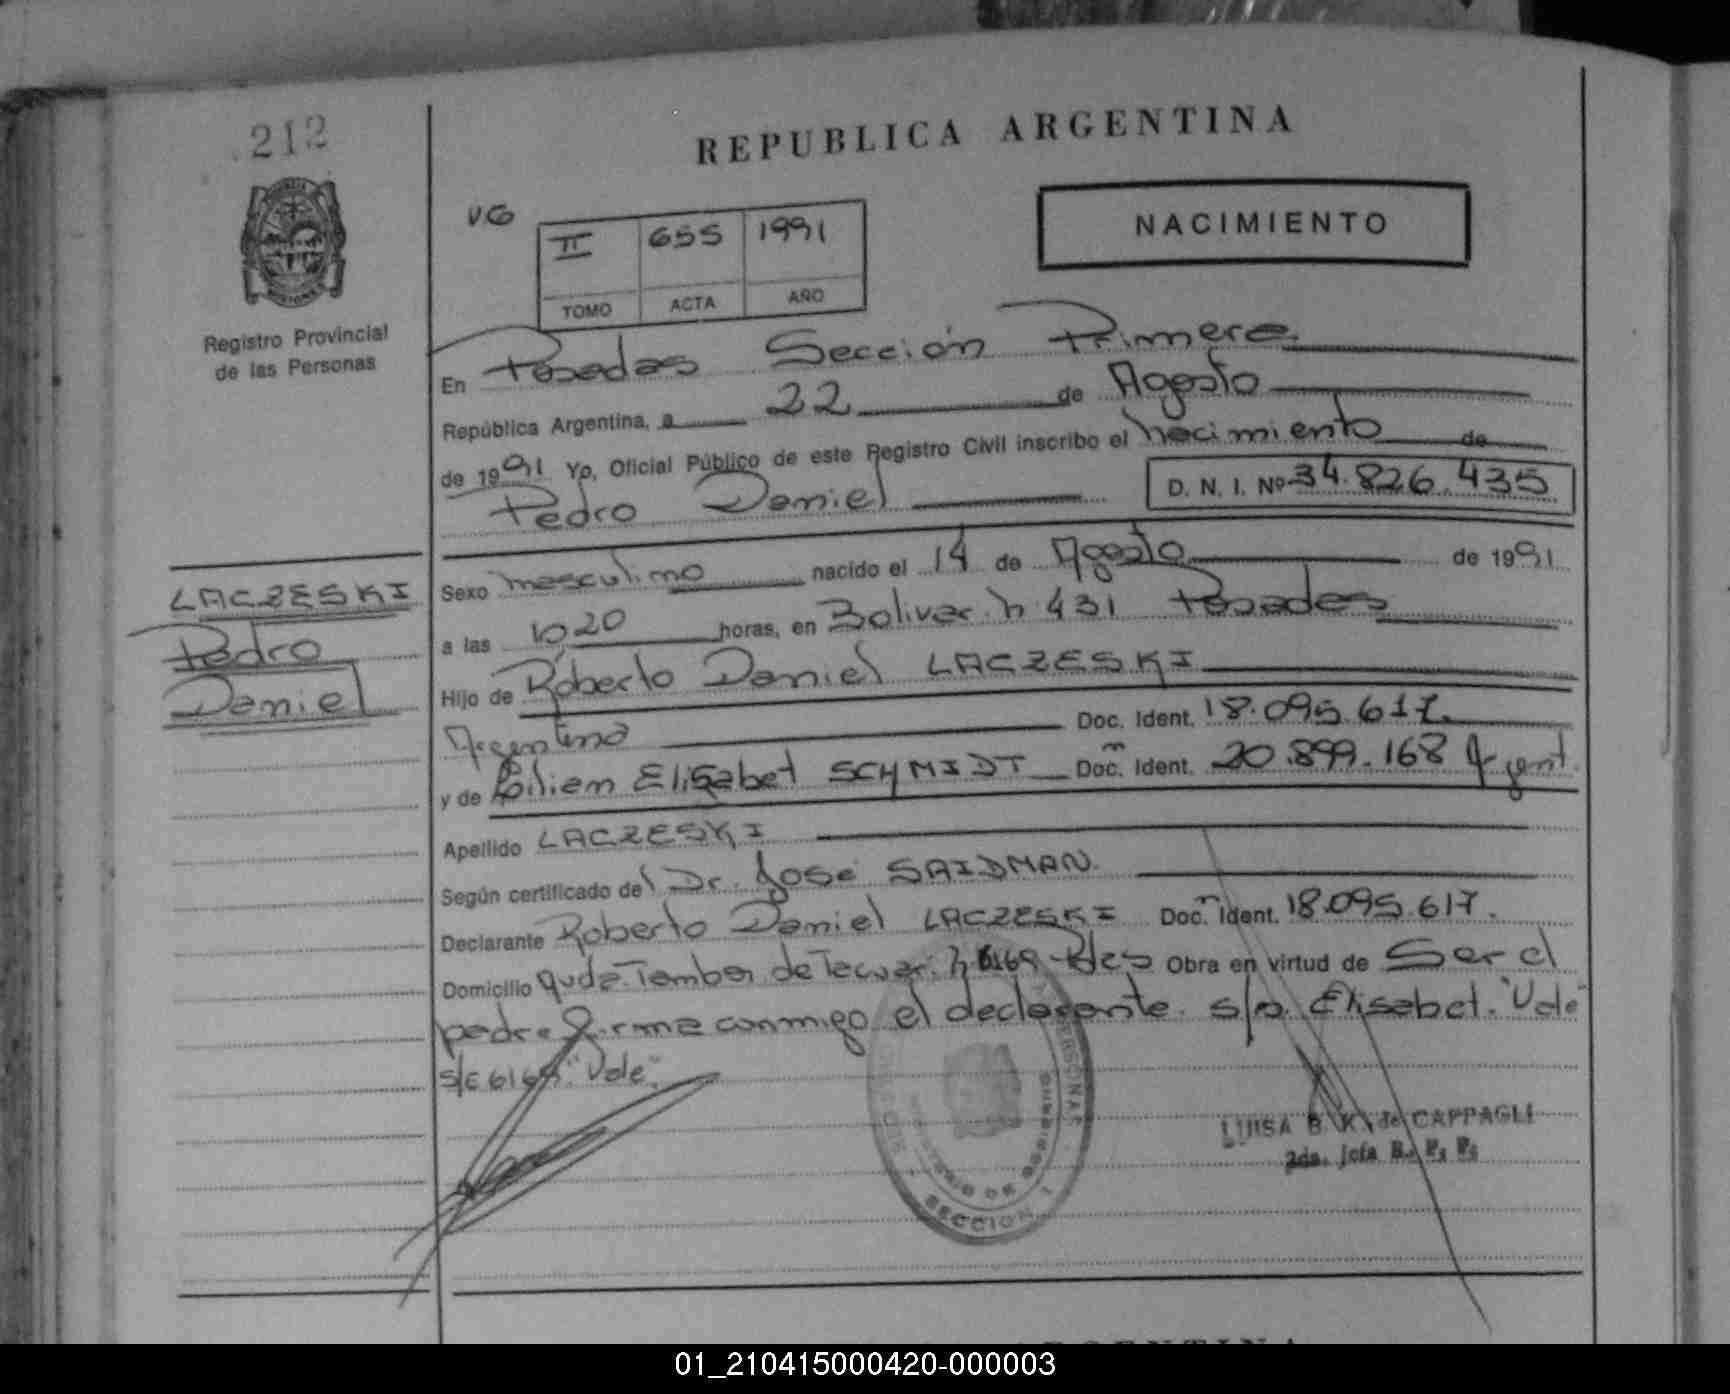 212
REPUBLICA ARGENTINA
VG
II 655 1991
TOMO ACTA AÑO
NACIMIENTO
Registro Provincial
de las Personas
En Posadas Sección Primera
República Argentina, a 22 de Agosto
de 1991 Yo, Oficial Público de este Registro Civil inscribo el nacimiento de
Pedro Daniel D. N. I. Nº 34.826.435
LACZESKI
Pedro
Daniel
Sexo masculino nacido el 14 de Agosto de 1991
a las 10,20 horas, en Bolivar nº 431 Posadas
Hijo de Roberto Daniel LACZESKI
Argentino Doc. Ident. 18.095.617
y de Lilian Elisabet SCHMIDT Doc. Ident. 20.899.168 Argent.
Apellido LACZESKI
Según certificado del Dr. José SAIDMAN
Declarante Roberto Daniel LACZESKI Doc. Ident. 18.095.617.
Domicilio Avda. Tambor de Tacuarí nº 6169 Pdas Obra en virtud de Ser el
padre firma conmigo el declarante. s/p. Elisabet. "Vale"
s/c 6169. "Vale."
SECCION 1
LUISA B. K. de CAPPAGLI
2da. Jefa
ARGENTINA
01_210415000420-000003